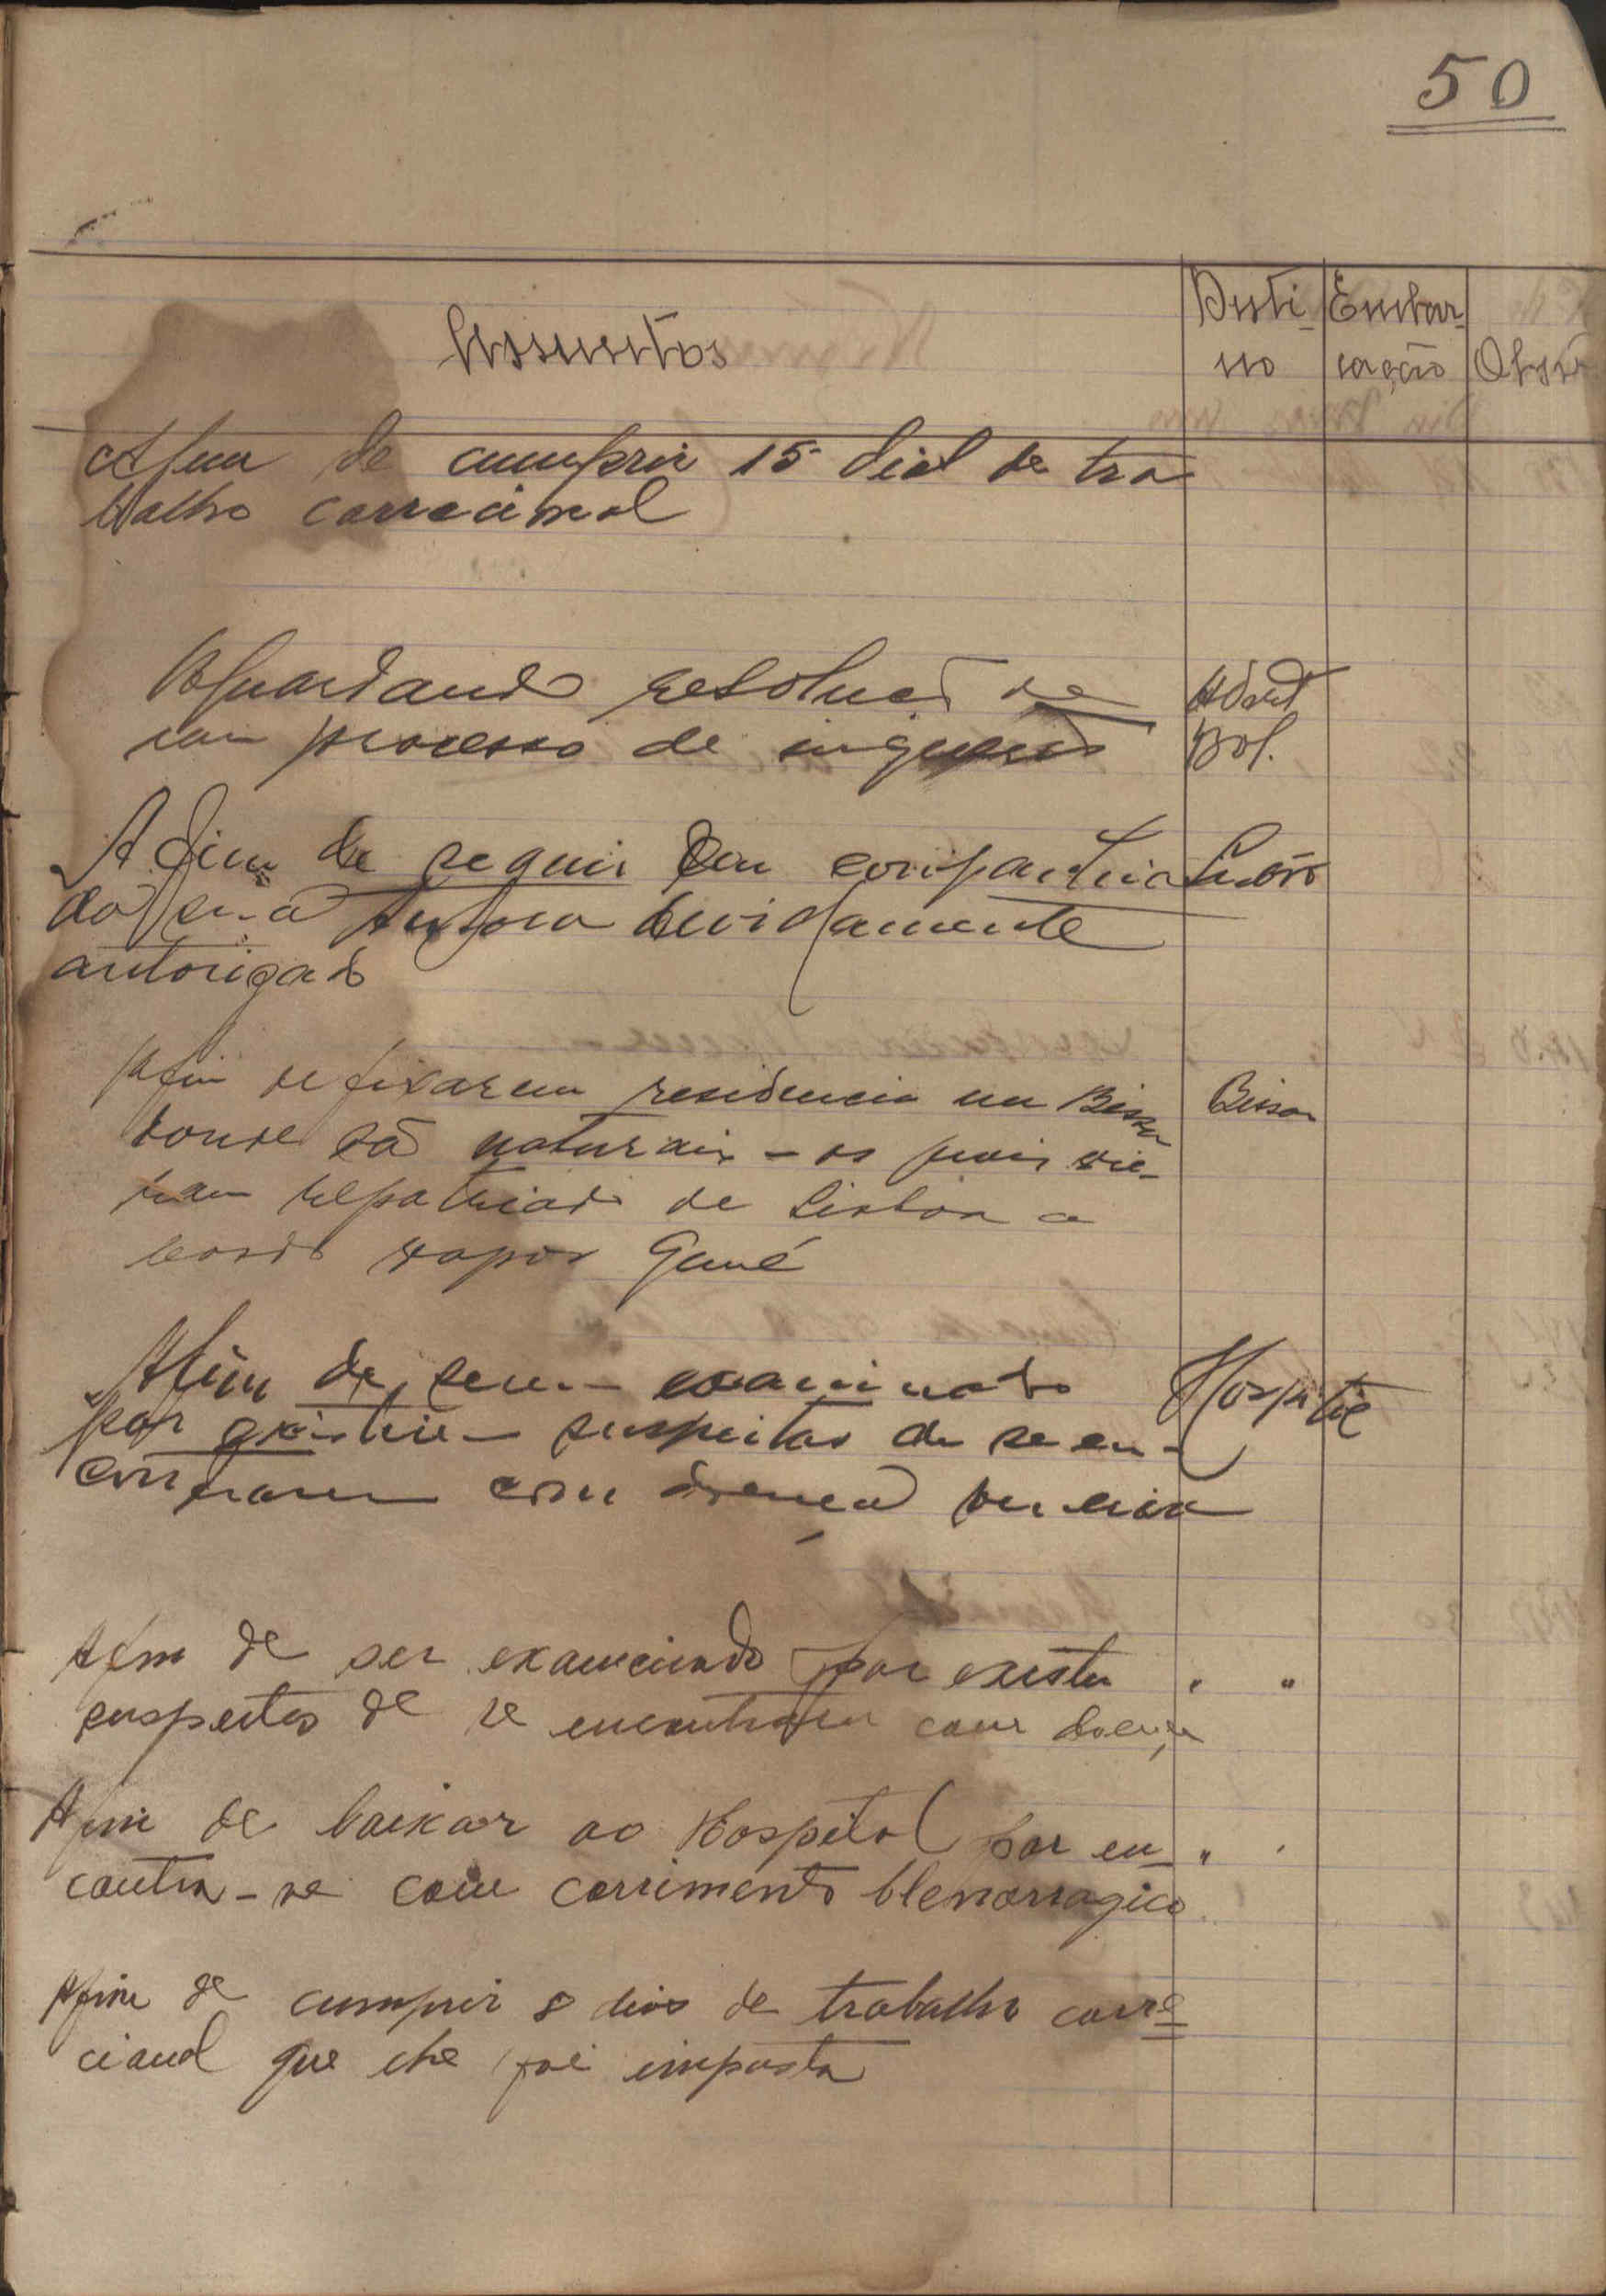 50
Assuntos
Desti-
no
Embar-
cação
Obser
Afim de cumprir 15 dias de tra
balho correcional
Aguardando resolução de
um processo de
Pol.
Afim de seguir em companhia
devidamente
autorizado
Afim de fixarem residencia em Bissau
Bissau
donde são naturais - os quais vie-
ram repatriados de Lisboa a
bordo vapor Guiné
Afim de serem examinados
Hospital
por existirem suspeitas de se en-
contrarem com doença venerea
Afim de ser examinado por existir " "
suspeitas de se encontrar com doença
Afim de baixar ao Hospital por en- " "
contra-se com corrimento blenorragico
Afim de cumprir 8 dias de trabalho corre
cional que lhe foi imposta